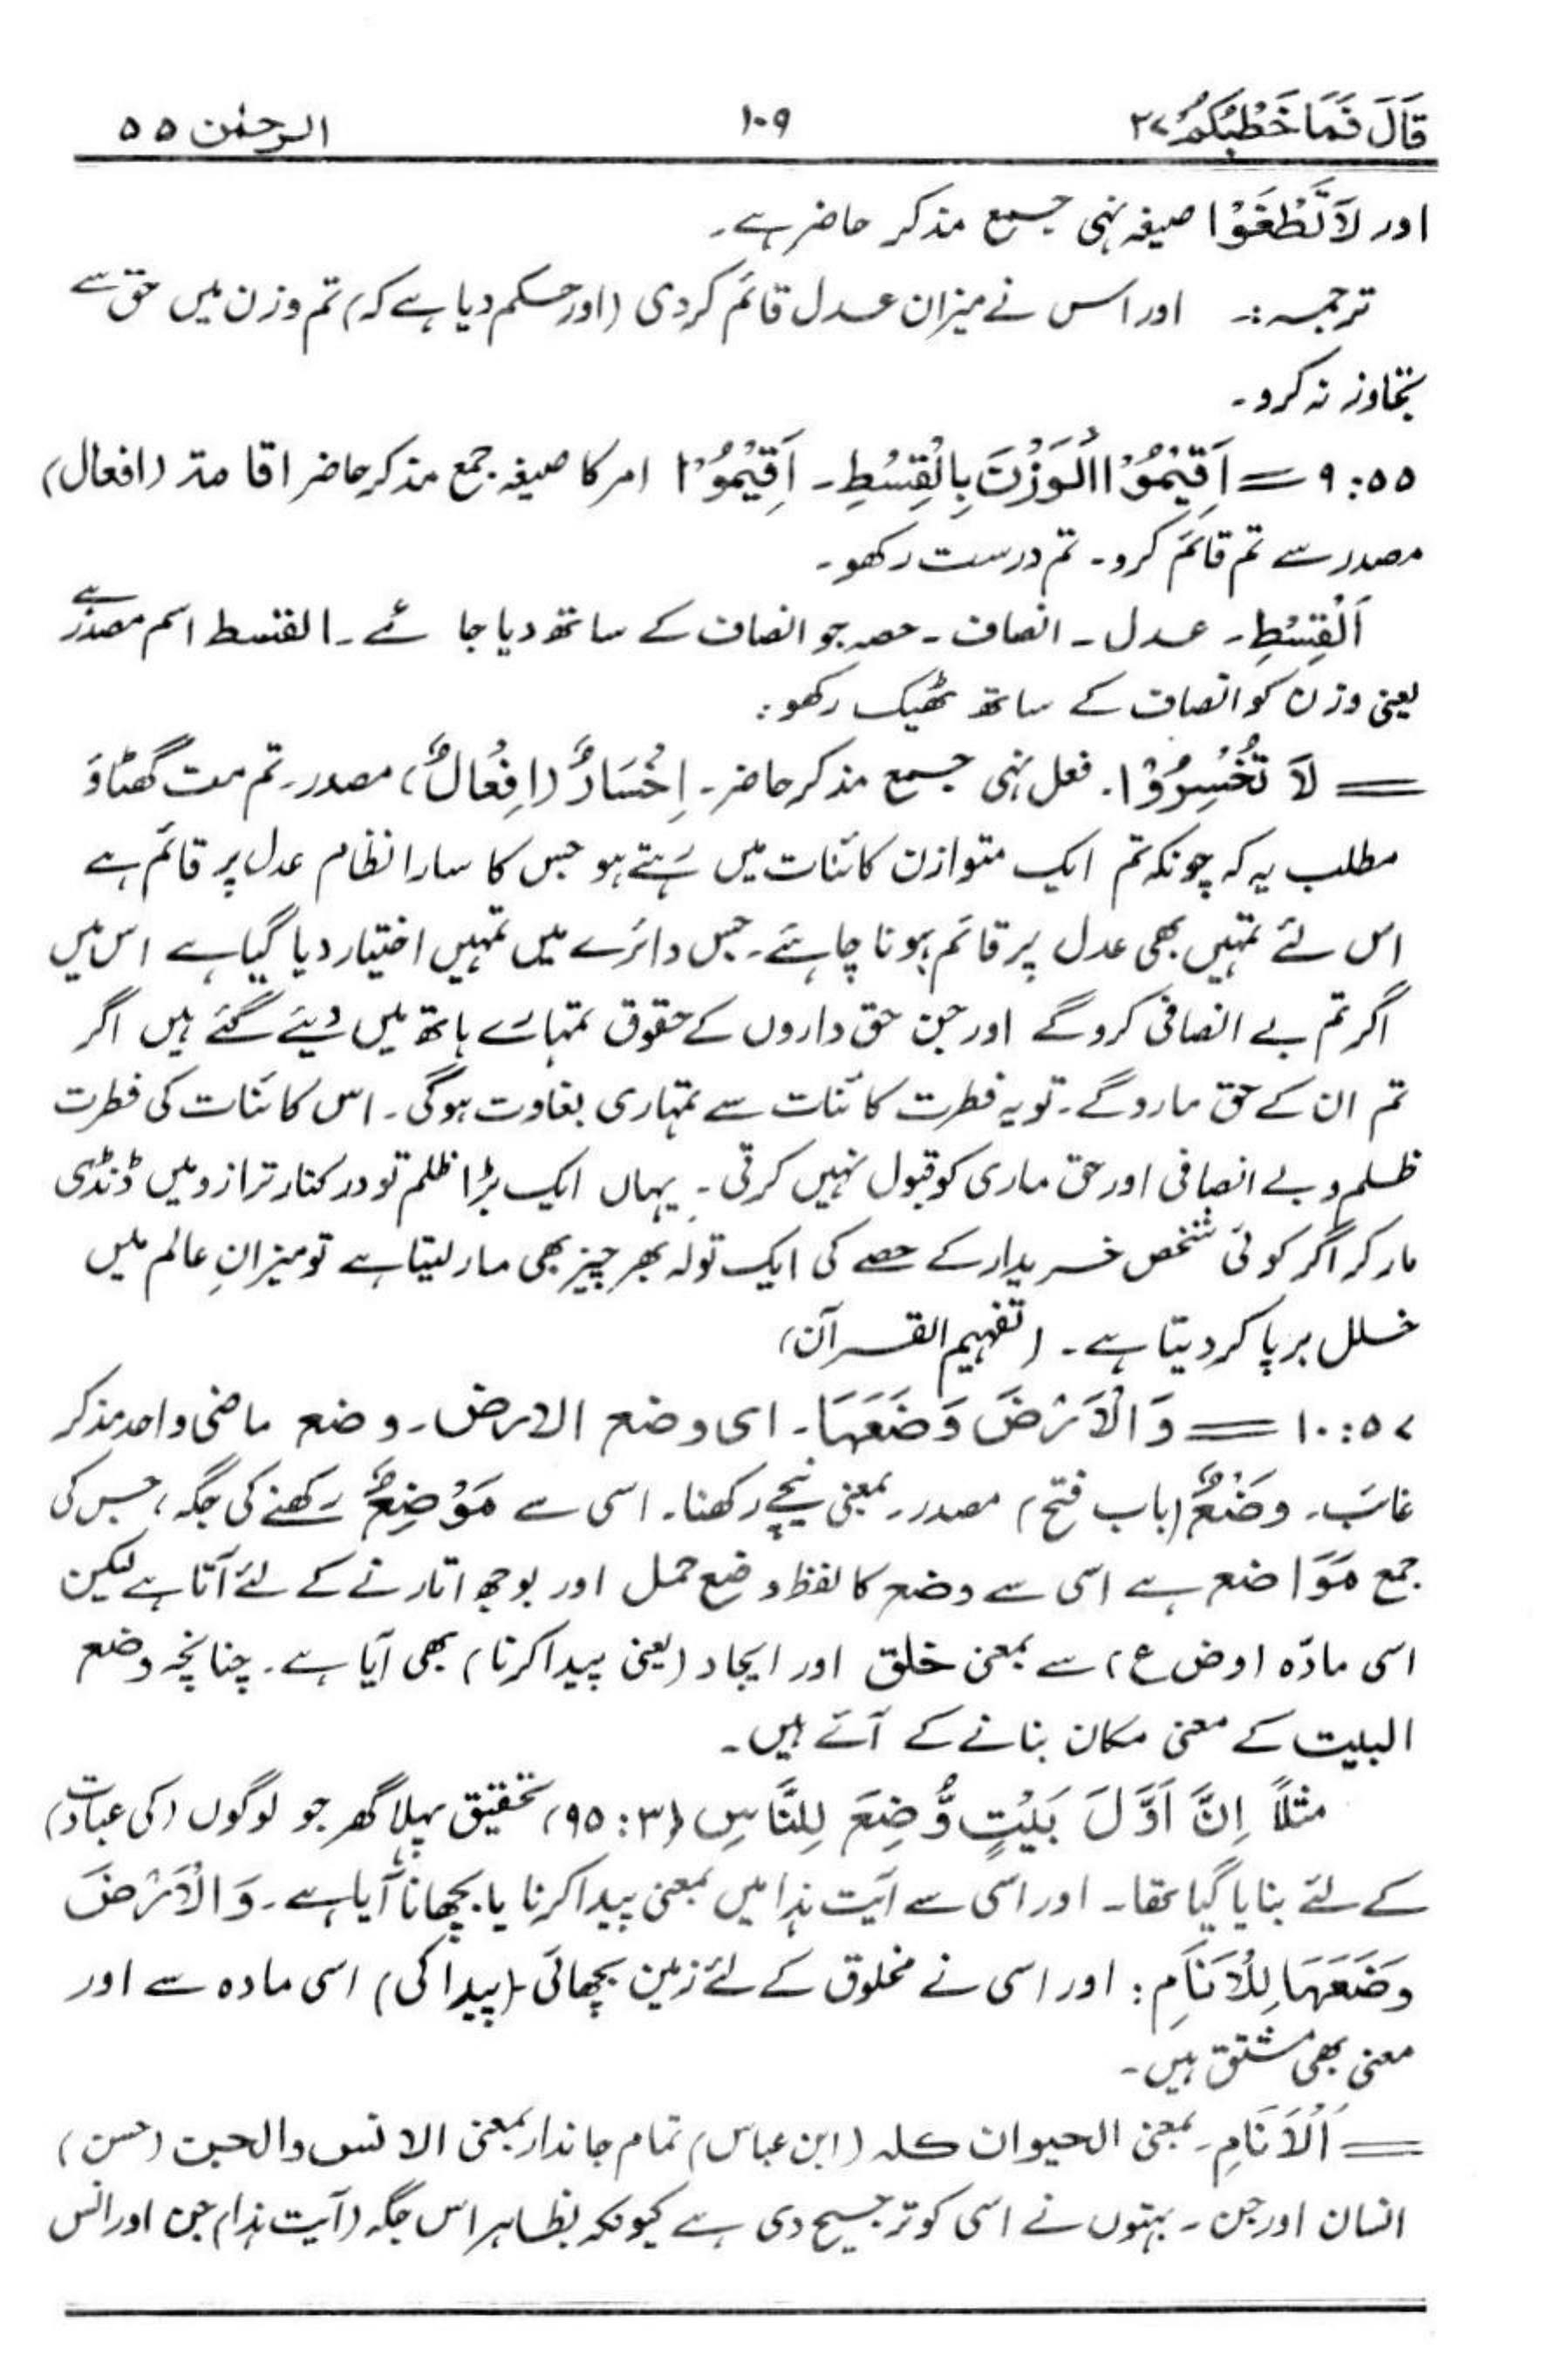 قَالَ فَمَا خَطْبُكُمْ ۲۷ ۱۰۹ الرحمٰن ۵۵
اور لَا تَطْغَوْا صیغہ نہی جمع مذکر حاضر ہے۔
ترجمہ:۔ اور اس نے میزان عدل قائم کردی (اور حکم دیا ہے کہ) تم وزن میں حق سے
تجاوز نہ کرو۔
۵۵: ۹ = اَقِيْمُوْا الْوَزْنَ بِالْقِسْطِ۔ اَقِيْمُوْا امر کا صیغہ جمع مذکر حاضر اقامۃ (افعال)
مصدر سے تم قائم کرو۔ تم درست رکھو۔
اَلْقِسْطِ۔ عدل۔ انصاف۔ حصہ جو انصاف کے ساتھ دیا جائے۔ القسط اسم مصدر ہے
یعنی وزن کو انصاف کے ساتھ ٹھیک رکھو:
= لَا تُخْسِرُوْا۔ فعل نہی جمع مذکر حاضر۔ اِخْسَارٌ (اِفْعَالٌ) مصدر۔ تم مت گھٹاؤ
مطلب یہ کہ چونکہ تم ایک متوازن کائنات میں رہتے ہو جس کا سارا نظام عدل پر قائم ہے
اس لئے تمہیں بھی عدل پر قائم ہونا چاہئے۔ جس دائرے میں تمہیں اختیار دیا گیا ہے اس میں
اگر تم بے انصافی کروگے اور جن حق داروں کے حقوق تمہارے ہاتھ میں دیئے گئے ہیں اگر
تم ان کے حق ماروگے۔ تو یہ فطرت کائنات سے تمہاری بغاوت ہوگی۔ اس کائنات کی فطرت
ظلم و بے انصافی اور حق ماری کو قبول نہیں کرتی۔ یہاں ایک بڑا ظلم تو درکنار ترازو میں ڈنڈی
مار کر اگر کوئی شخص خریدار کے حصے کی ایک تولہ بھر چیز بھی مار لیتا ہے تو میزانِ عالم میں
خلل برپا کر دیتا ہے۔ (تفہیم القرآن)
۵۷: ۱۰ = وَالْاَرْضَ وَضَعَهَا۔ ای وضع الارض۔ وضع ماضی واحد مذکر
غائب۔ وَضْعٌ (باب فتح) مصدر۔ بمعنی نیچے رکھنا۔ اسی سے مَوْضِعٌ رکھنے کی جگہ، جس کی
جمع مَوَاضع ہے اسی سے وضع کا لفظ وضع حمل اور بوجھ اتارنے کے لئے آتا ہے لیکن
اسی مادّہ (وض ع) سے بمعنی خلق اور ایجاد (یعنی پیدا کرنا) بھی آیا ہے۔ چنانچہ وضع
البیت کے معنی مکان بنانے کے آئے ہیں۔
مثلاً اِنَّ اَوَّلَ بَيْتٍ وُّضِعَ لِلنَّاسِ (۳: ۹۵) تحقیق پہلا گھر جو لوگوں (کی عبادت)
کے لئے بنایا گیا تھا۔ اور اسی سے آیت ہذا میں بمعنی پیدا کرنا یا بچھانا آیا ہے۔ وَالْاَرْضَ
وَضَعَهَا لِلْاَنَامِ: اور اسی نے مخلوق کے لئے زمین بچھائی (پیدا کی) اسی مادہ سے اور
معنی بھی مشتق ہیں۔
= اَلْاَنَامِ۔ بمعنی الحیوان کلہ (ابن عباس) تمام جاندار بمعنی الانس والجن (حسن)
انسان اور جن۔ بہتوں نے اسی کو ترجیح دی ہے کیونکہ بظاہر اس جگہ (آیت ہذا) جن اور انس